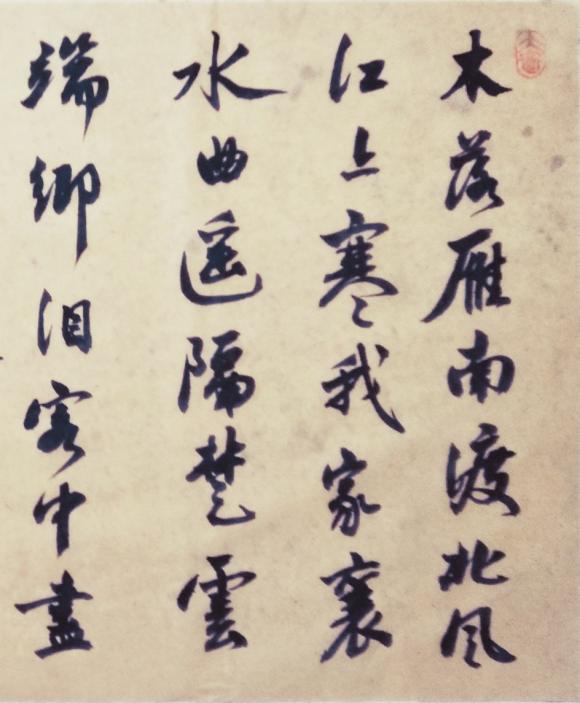 木落雁南渡北风
江上寒我家襄
水曲遥隔楚雲
端鄉泪客中盡